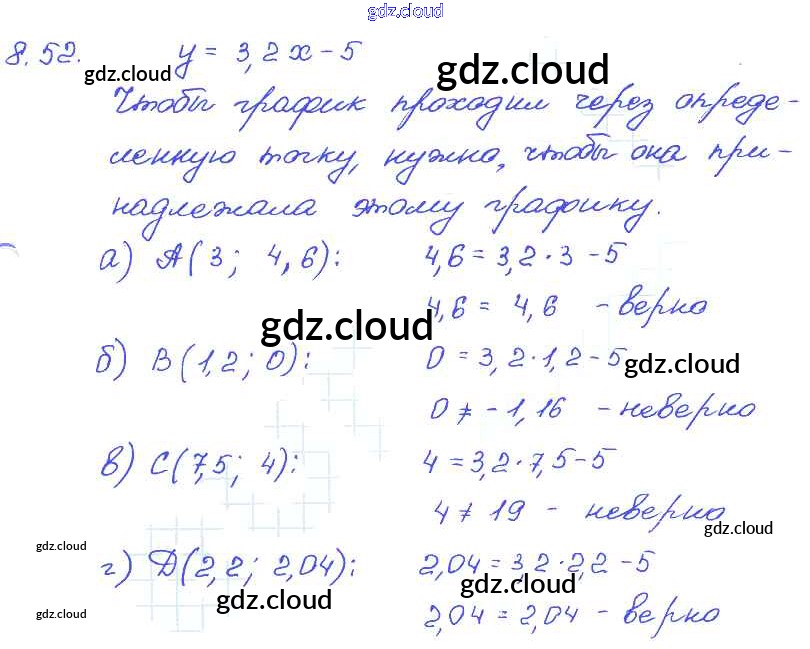 gdz.cloud
8.52. y = 3,2x - 5
gdz.cloud gdz.cloud
Чтобы график проходил через опреде-
ленную точку, нужно, чтобы она при-
надлежала этому графику.
а) A(3; 4,6): 4,6 = 3,2 · 3 - 5
4,6 = 4,6 - верно
gdz.cloud
б) B(1,2; 0): 0 = 3,2 · 1,2 - 5
gdz.cloud
0 ≠ -1,16 - неверно
в) C(7,5; 4): 4 = 3,2 · 7,5 - 5
4 ≠ 19 - неверно
gdz.cloud
gdz.cloud
г) D(2,2; 2,04): 2,04 = 3,2 · 2,2 - 5
gdz.cloud gdz.cloud
gdz.cloud
2,04 = 2,04 - верно